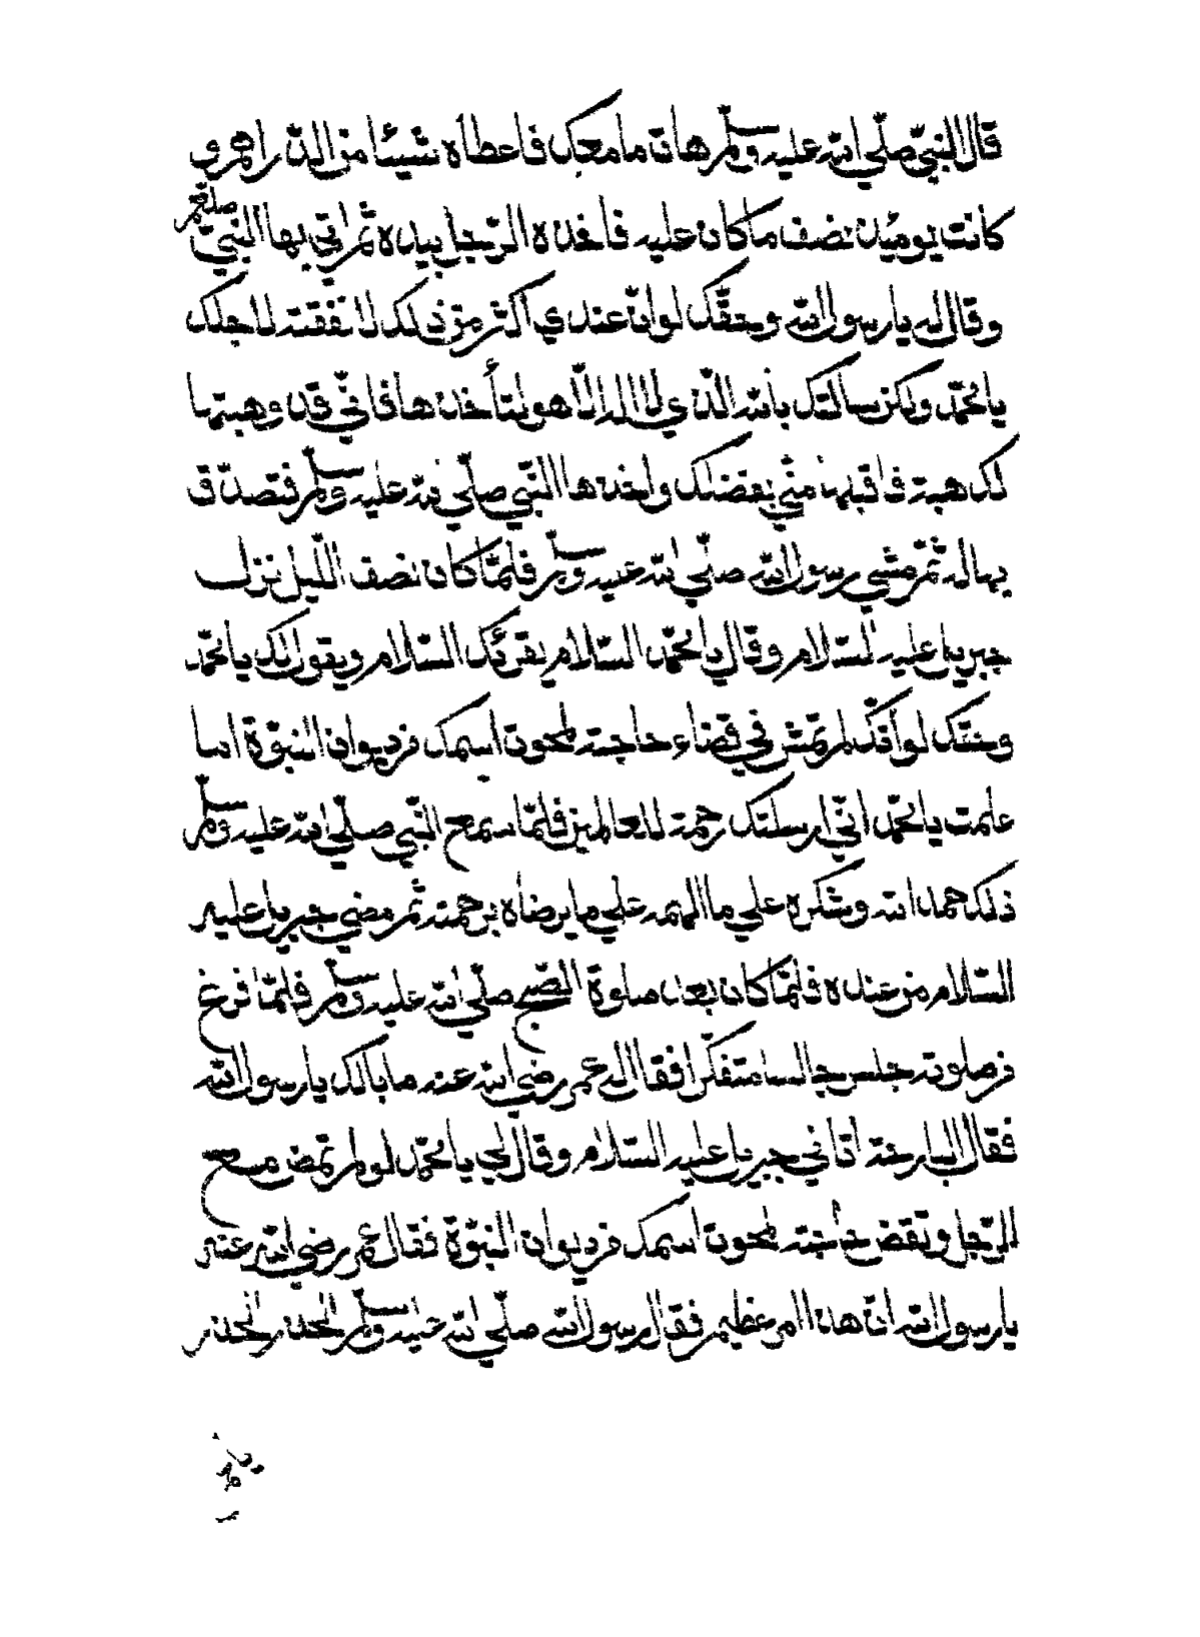 قال النبيّ صلّي الله عليه وسلّم هات ما معك فاعطاه شيئا من الدّراهم و
كانت يومئذ نصف ما كان عليه فاخذه الرّجل بيده ثمّ اتي بها النبيّ صلعم
وقال له يا رسول الله وحقّك لو انّ عندي اكثر من ذلك لانفقته لاجلك
يا محمّد ولكن سالتك بالله الّذي لا اله الّا هو لتأخذها فانّي قد وهبتها
لك هبة فاقبلها منّي بفضلك واخذها النّبي صلّي الله عليه وسلّم فتصدّق
بها له ثمّ مشي رسول الله صلّي الله عليه وسلّم فلمّا كان نصف اللّيل نزل
جبريل عليه السّلام وقال يا محمّد السّلام يقرئك السّلام ويقول لك يا محمّد
وحقّك لو أنّك لم تمش في قضاء حاجته لمحوت اسمك من ديوان النبوّة اما
علمت يا محمّد انّي ارسلتك رحمة للعالمين فلمّا سمع النّبي صلّي الله عليه وسلّم
ذلك حمد الله وشكره علي ما الهمه علي ما يرضاه برحمته ثمّ مضي جبريل عليه
السّلام من عنده فلمّا كان بعد صلوة الصّبح صلّي الله عليه وسلّم فلمّا فرغ
من صلوته جلس جالسا متفكّرا فقال له عمر رضي الله عنه ما بالك يا رسول الله
فقال البارحة اتاني جبريل عليه السّلام وقال لي يا محمّد لو لم تمض مع
الرّجل وتقض حاجته لمحوت اسمك من ديوان النبوّة فقال عمر رضي الله عنه
يا رسول الله انّ هذا امر عظيم فقال رسول الله صلّي الله عليه وسلّم الحذر الحذر